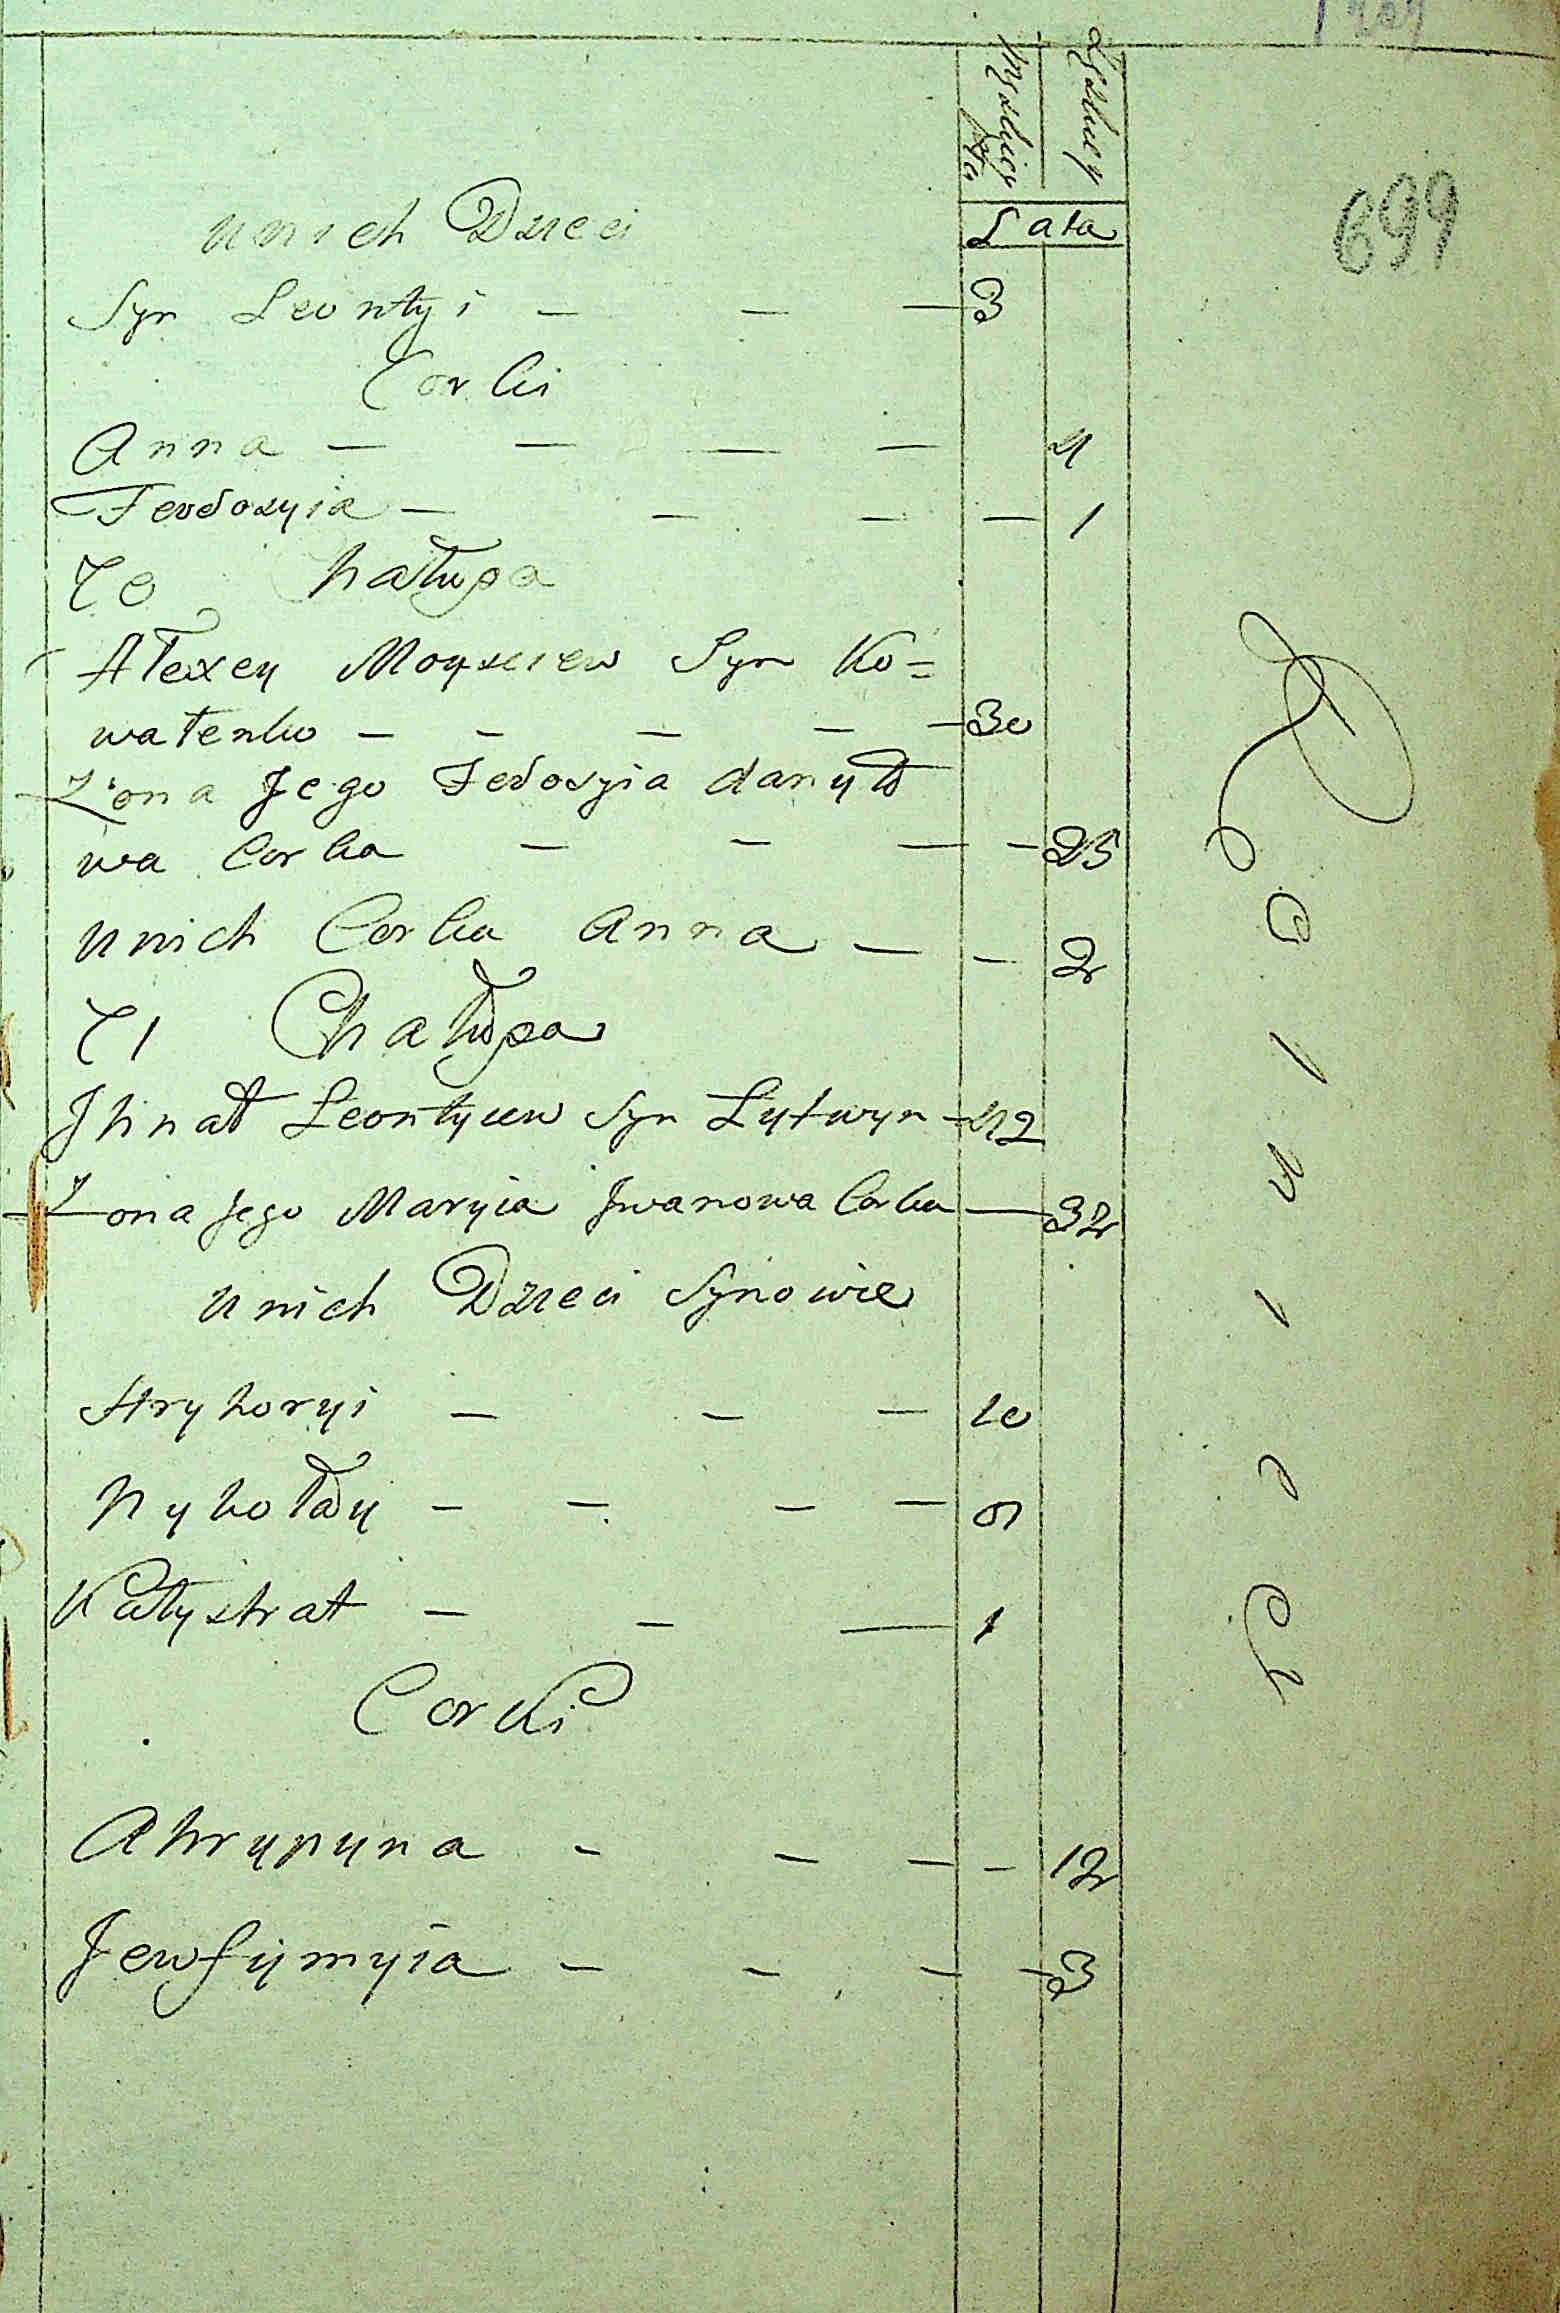 699
Męzkiey Płci
Żęzkiey
Lata
u nich Dzieci
Syn Leontyi — — — 3
Corki
Anna — — — — 4
Feodosyia — — — — 1
70 Chałupa
Alexey Moysiew Syn Ko=
walenko — — — — — 30
Żona Jego Fedosyia danyło
wa Corka — — — — 25
u nich Corka Anna — — 2
71 Chałupa
Jhnat Leontyiew Syn Lytwyn — 42
Żona Jego Maryia Jwanowa Corka — 32
u nich Dzieci Synowie
Hryhoryi — — — 10
Nykołay — — — — 5
Kalystrat — — — 1
Corki
Ahrypyna — — — — 12
Jewfymyia — — — — 3